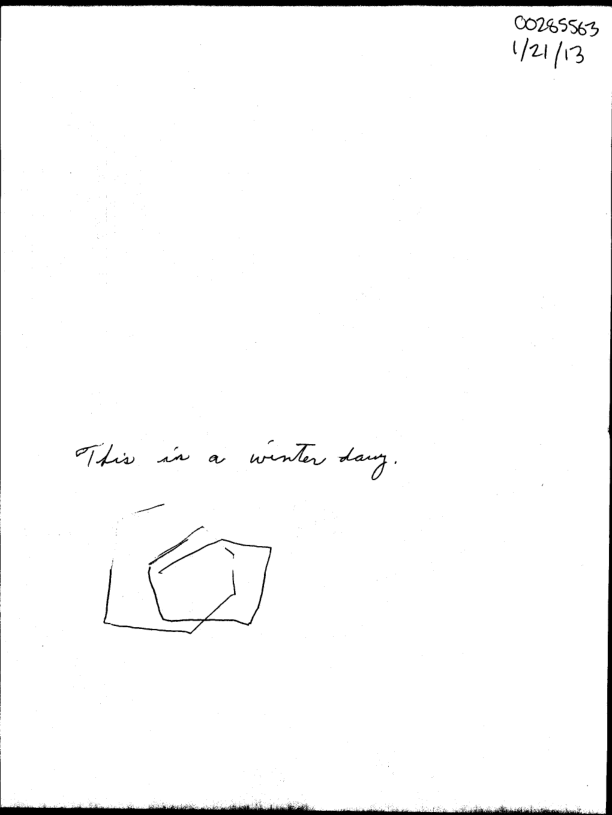 00285563
1/21/13
This is a winter dauy.